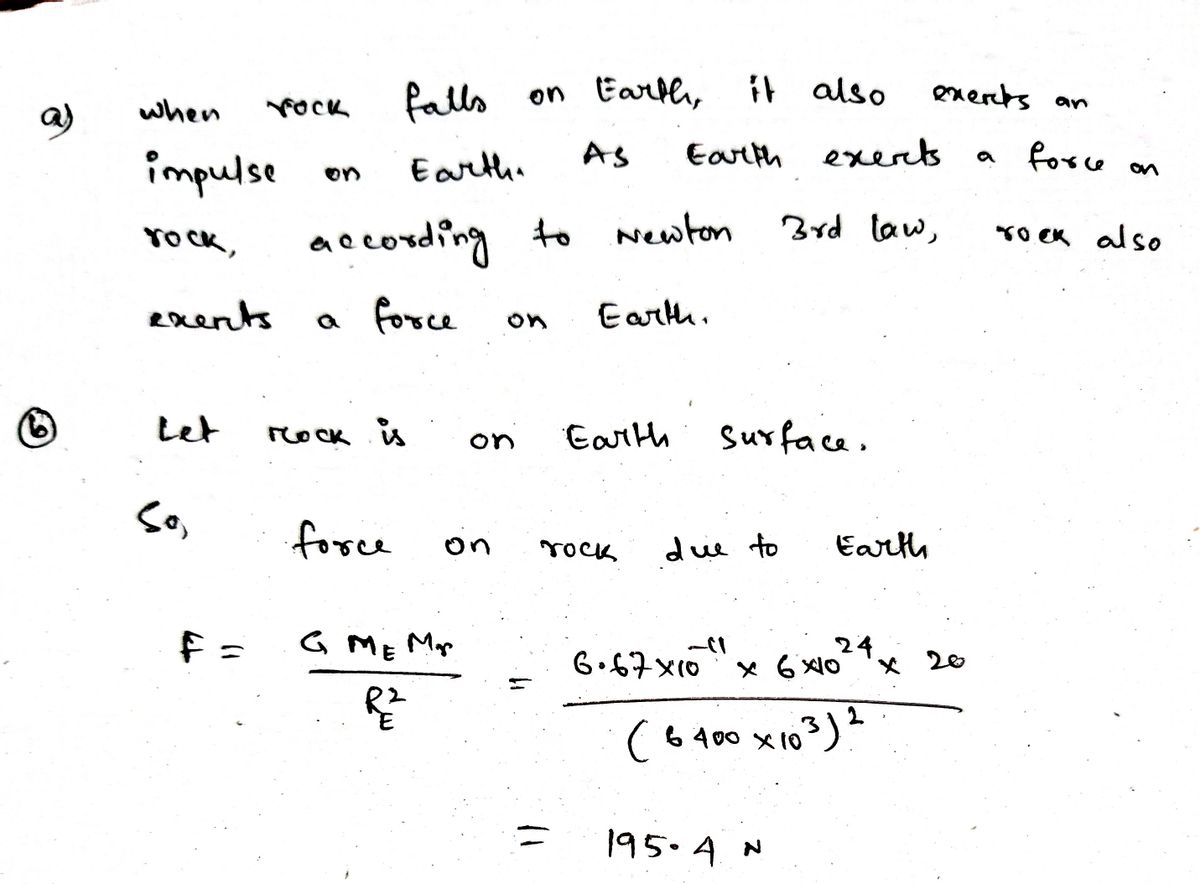 a) when rock falls on Earth, it also exerts an
impulse on Earth. As Earth exerts a force on
rock, according to Newton 3rd law, rock also
exerts a force on Earth.
(b) Let rock is on Earth surface.
So, force on rock due to Earth
F = G M_E M_r / R_E^2 = 6.67 × 10^-11 × 6 × 10^24 × 20 / (6400 × 10^3)^2
= 195.4 N